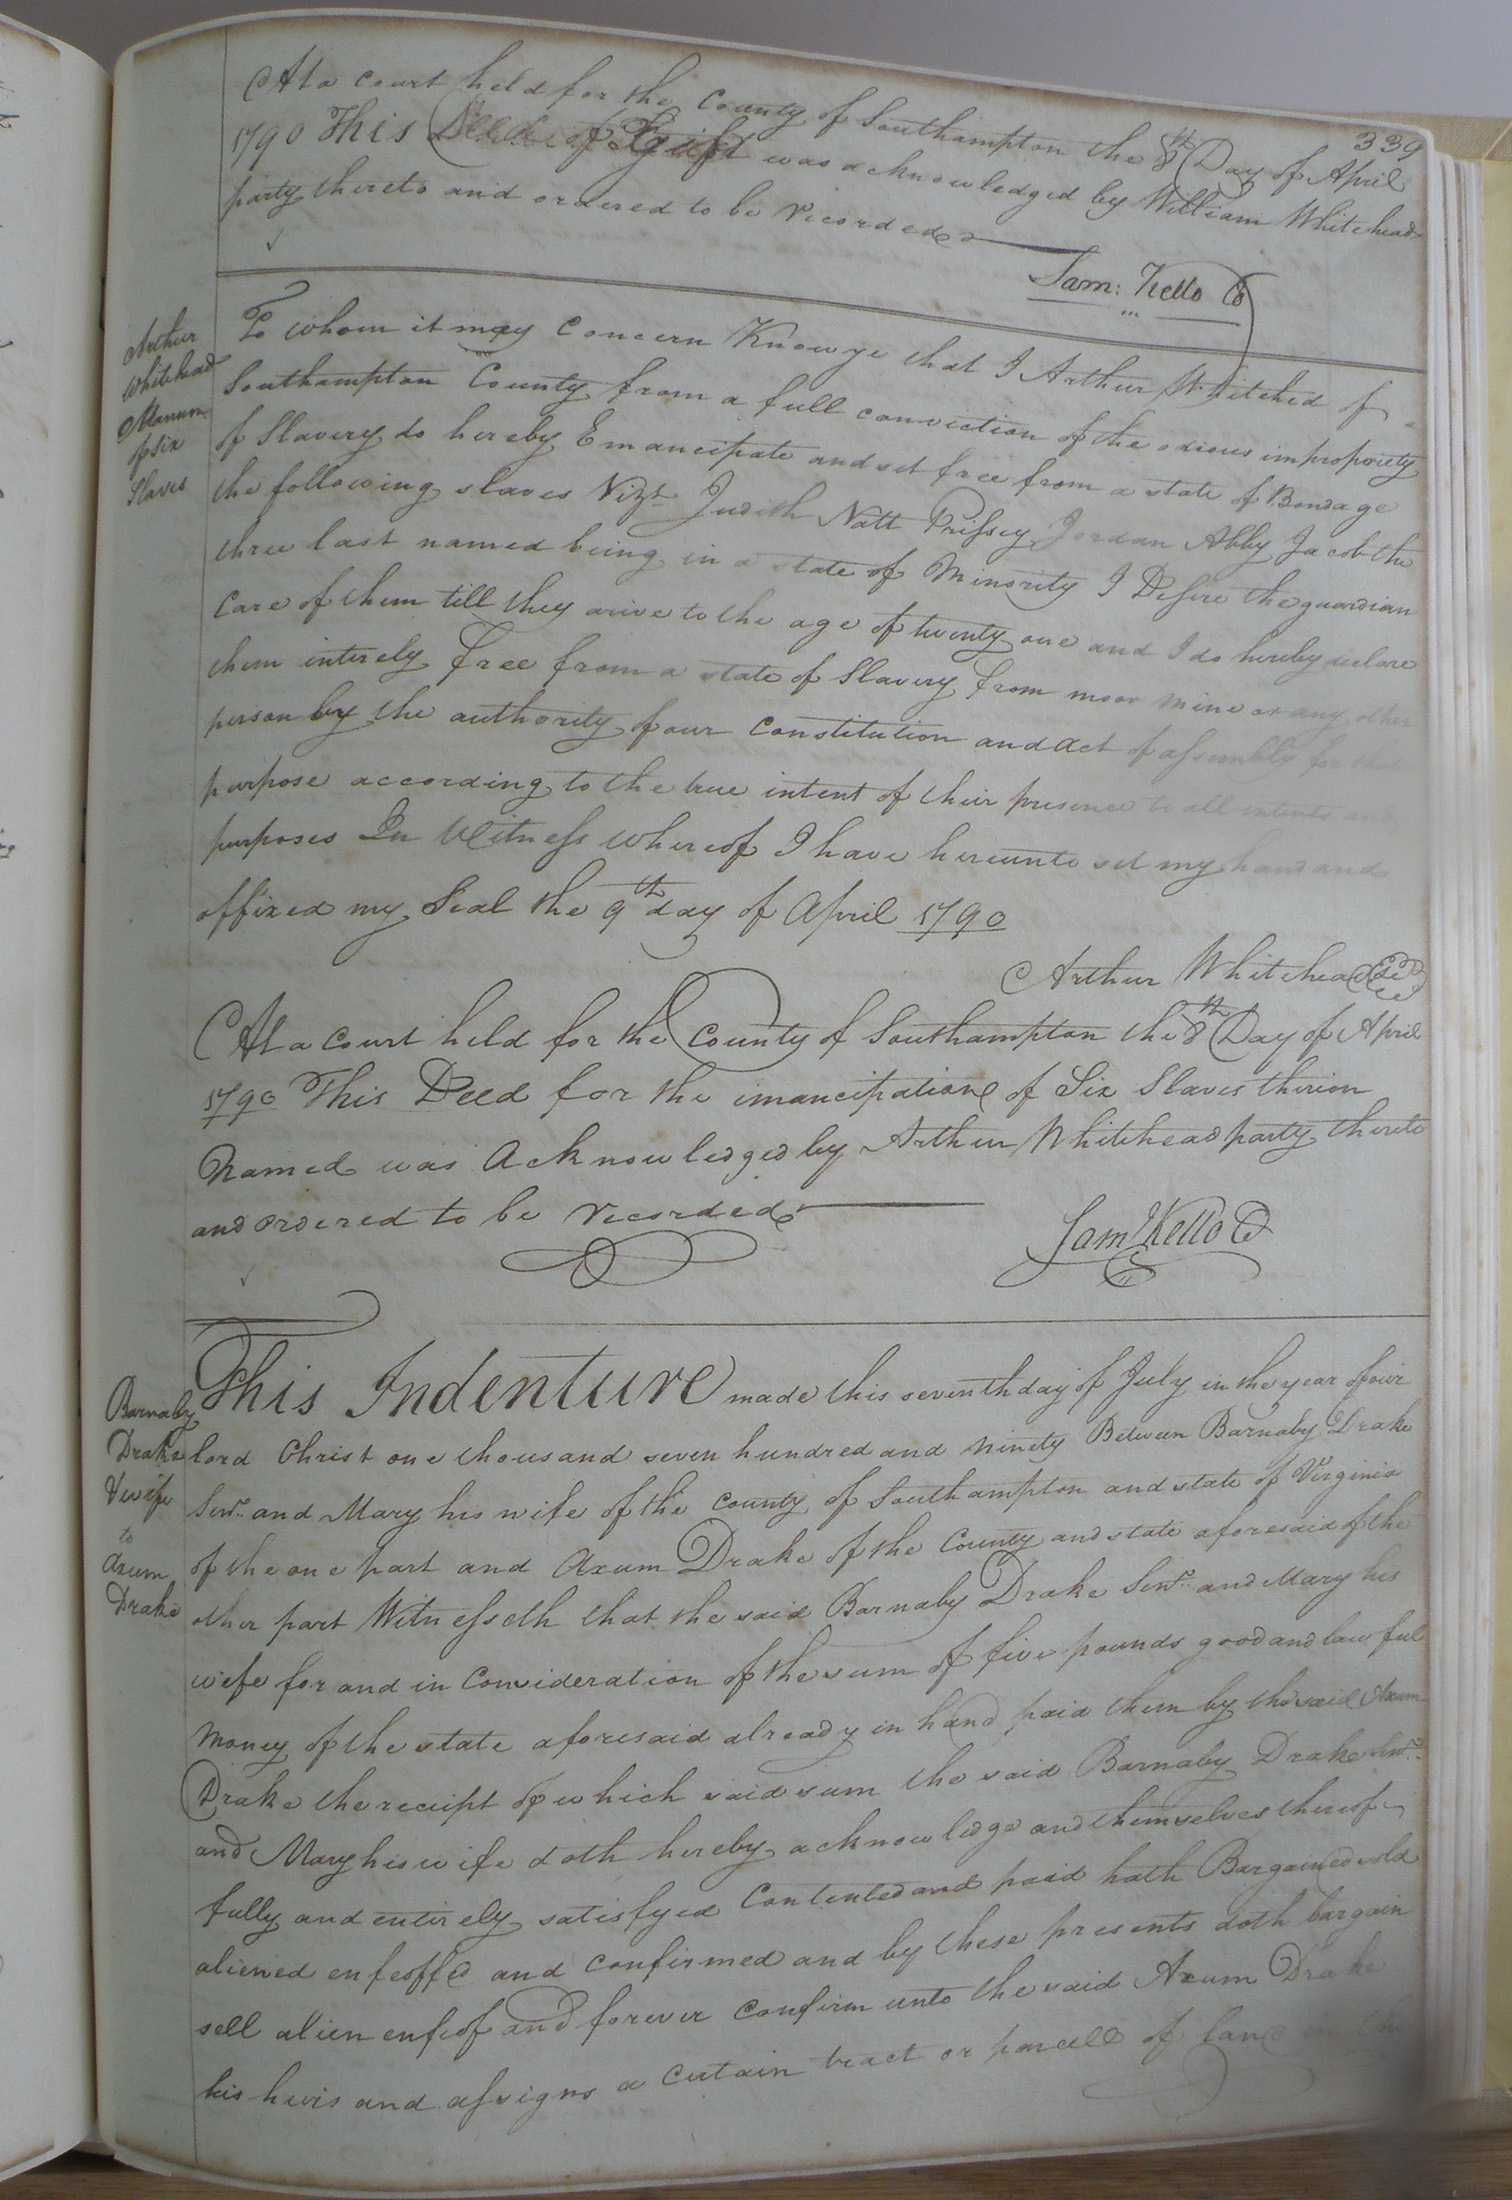 339
At a court held for the County of Southampton the 8th Day of April
1790 This Deed of Gift was acknowledged by William Whitehead
party thereto and ordered to be recorded
Sam: Kello C
Arthur
Whitehead
Manum
of six
Slaves
To whom it may Concern Know ye that I Arthur Whitehed of
Southampton County from a full conviction of the odious impropriety
of Slavery do hereby Emancipate and set free from a state of Bondage
the following slaves Vizt Judith Natt Prissey Jordan Abby Jacob the
three last named being in a state of Minority I Desire the guardian
Care of them till they arive to the age of twenty one and I do hereby declare
them intirely free from a state of Slavery from me or mine or any other
person by the authority of our Constitution and Act of assembly for that
purpose according to the true intent of their presence to all intents and
purposes In Witness whereof I have hereunto set my hand and
affixed my Seal the 9th day of April 1790
Arthur Whitehead
At a Court held for the County of Southampton the 8th Day of April
1790 This Deed for the imancipation of Six Slaves therein
Named was Acknowledged by Arthur Whitehead party thereto
and ordered to be recorded
Saml Kello C
Barnaby
Drake
& wife
to
Axum
Drake
This Indenture made this seventh day of July in the year of our
lord Christ one thousand seven hundred and ninety Between Barnaby Drake
Senr. and Mary his wife of the County of Southampton and state of Virginia
of the one part and Axum Drake of the County and state aforesaid of the
other part Witnesseth that the said Barnaby Drake Senr. and Mary his
wife for and in Consideration of the sum of five pounds good and lawful
money of the state aforesaid already in hand paid them by the said Axum
Drake the receipt of which said sum the said Barnaby Drake Senr.
and Mary his wife doth hereby acknowledge and themselves thereof
fully and entirely satisfyed Contented and paid hath Bargained sold
aliened enfeoffed and confirmed and by these presents doth bargain
sell alien enfeof and forever Confirm unto the said Axum Drake
his heirs and assigns a certain tract or parcell of land